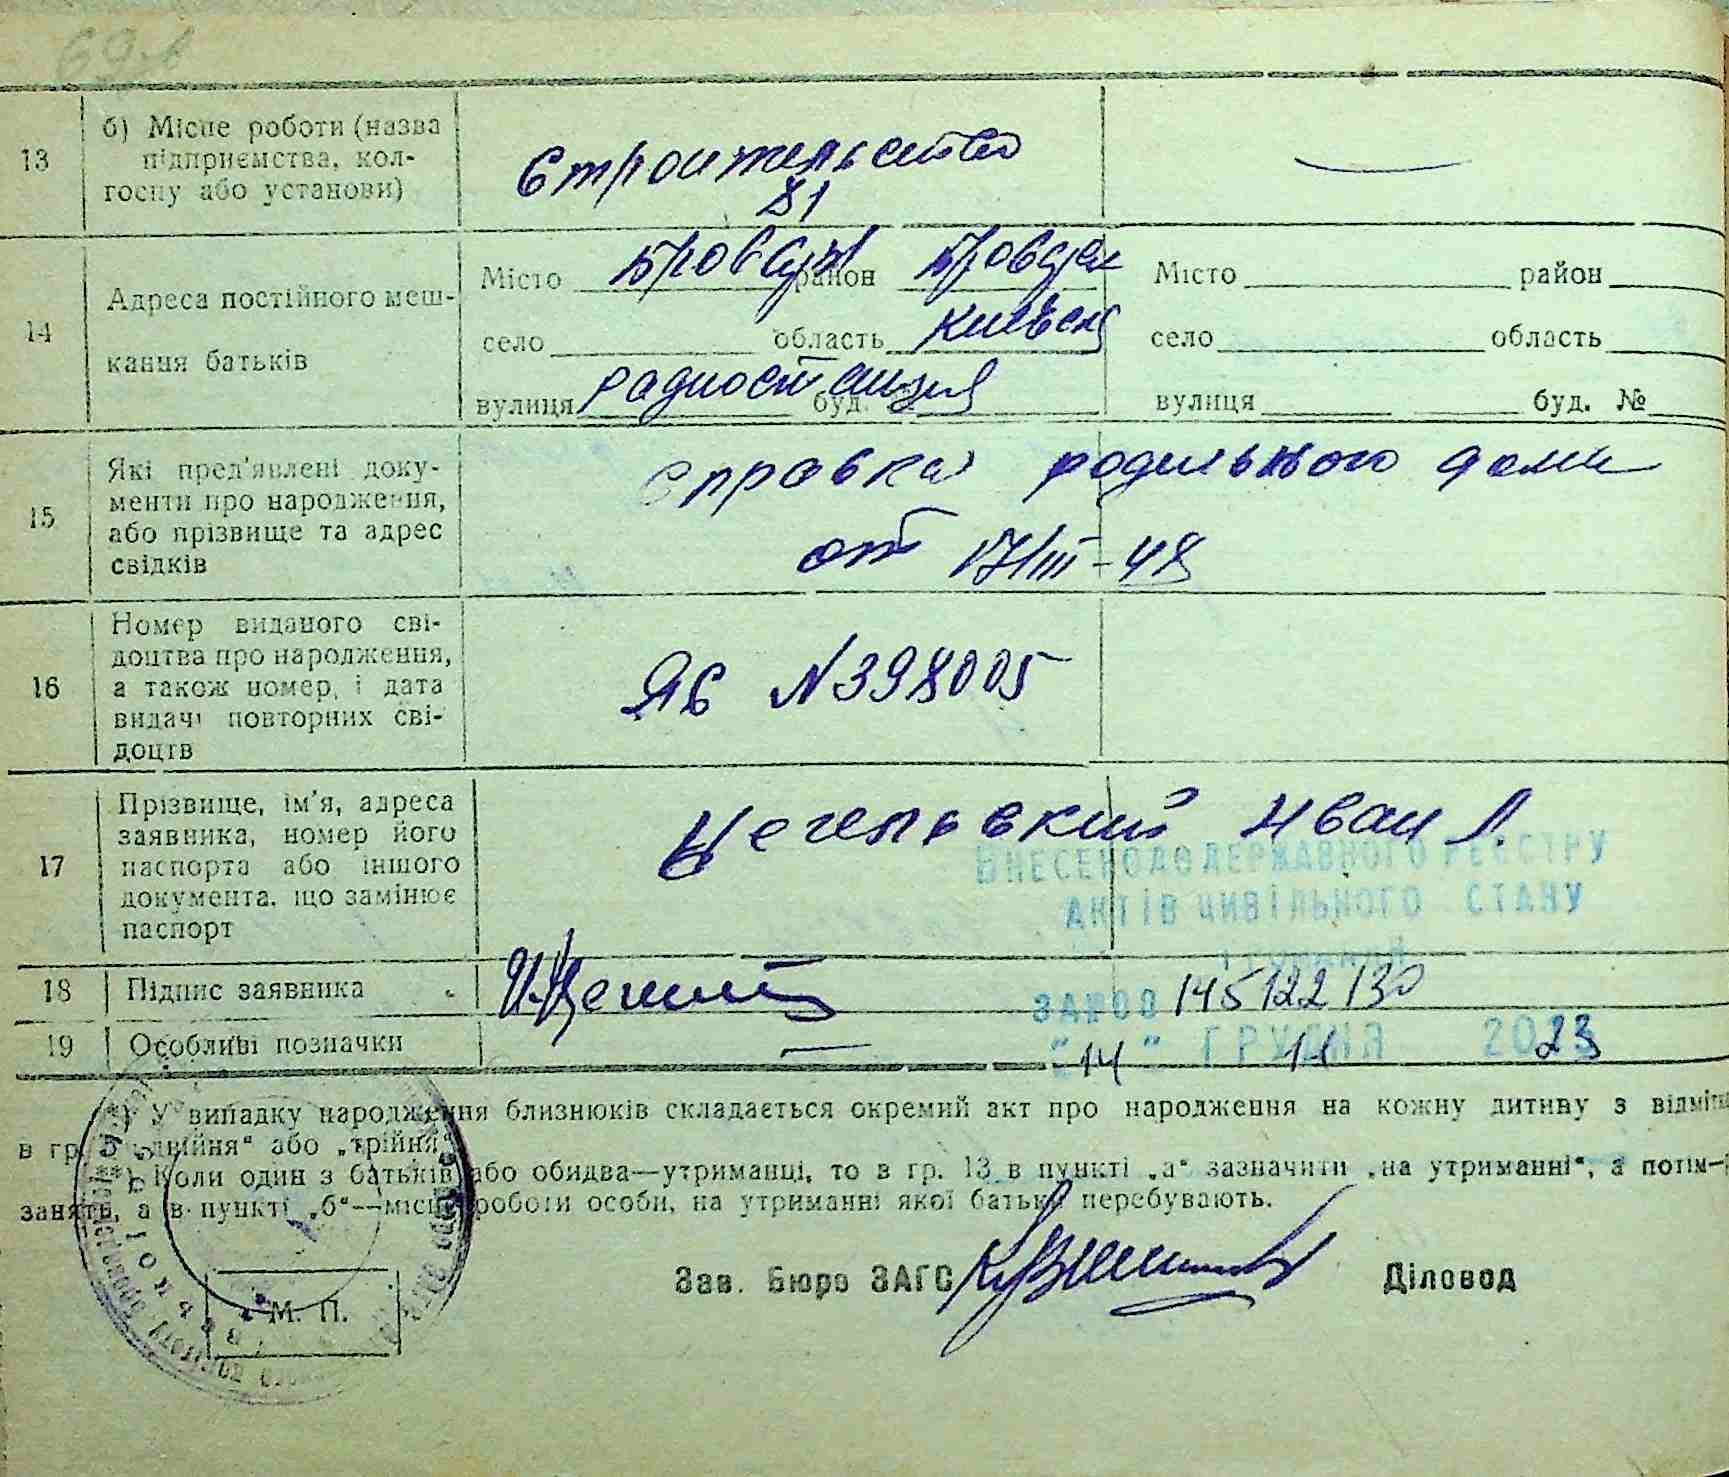 69
13 б) Місце роботи (назва
підприємства, кол-
госпу або установи)
Строительство
81
14 Адреса постійного меш-
кання батьків
Місто Бровары район Бровдск
село область Киевск
вулиця радиостанция буд.
Місто район
село область
вулиця буд. №
15 Які пред'явлені доку-
менти про народження,
або прізвище та адрес
свідків
справка родильного дома
от 17/III-48
16 Номер виданого сві-
доцтва про народження,
а також номер, і дата
видачі повторних сві-
доцтв
ЯБ N398005
17 Прізвище, ім'я, адреса
заявника, номер його
паспорта або іншого
документа, що замінює
паспорт
Цегельский Иван Л.
ВНЕСЕНО ДО ДЕРЖАВНОГО РЕЄСТРУ
АКТІВ ЦИВІЛЬНОГО СТАНУ
ГРОМАДЯН
18 Підпис заявника
ЗА № 00 145122130
19 Особливі позначки —
"14" ГРУДНЯ 2023
*) У випадку народження близнюків складається окремий акт про народження на кожну дитину з відміт
в гр. 5 „двійня“ або „трійня“
**) Коли один з батьків або обидва—утриманці, то в гр. 13 в пункті „а“ зазначити „на утриманні“, а потім—
заняття, а в пункті „б“—місце роботи особи, на утриманні якої батьки перебувають.
Зав. Бюро ЗАГС Діловод
М. П.